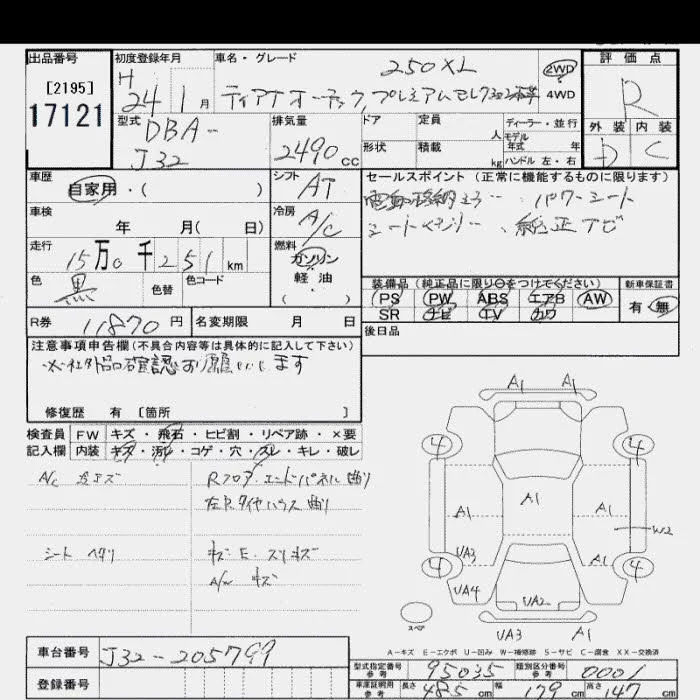 出品番号
[2195]
17121
初度登録年月
H
24 1 月
車名・グレード
250XL
2WD
4WD
評価点
R
型式
DBA-
J32
排気量
2490 cc
ドア
定員
人
ディーラー・並行
モデル
年式 年
形状
積載
kg
ハンドル 左・右
外装 内装
D C
車歴
自家用・( )
シフト
AT
セールスポイント (正常に機能するものに限ります)
パワーシート
純正ナビ
車検
年 月( 日)
冷房
A/C
走行
15万0千251km
燃料
ガソリン
軽油
( )
色
黒
色替
色コード
装備品(純正品に限り〇をつけてください)
新車保証書
PS PW ABS エアB AW
有・無
SR ナビ TV カワ
R券
11870 円
名変期限 月 日
後日品
注意事項申告欄(不具合内容等は具体的に記入して下さい)
※社外品確認お願いします
修復歴 有 [箇所 ]
検査員
記入欄
FW キズ・飛石・ヒビ割・リペア跡・×要
内装 キズ・汚レ・コゲ・穴・スレ・キレ・破レ
A/C
Rフロア、エンドパネル曲り
左R.タイヤハウス曲り
シート ヘタリ
キズ・E・スリキズ
A/W キズ
A1 A1
4 4
A1 A1 A1
W2
UA3 A1
4 4
UA4 UA2
スペア
UA3 A1
A-キズ E-エクボ U-凹み W-補修跡 S-サビ C-腐食 XX-交換済
車台番号
J32-205799
登録番号
型式指定番号
参考
95035
類別区分番号
参考
0001
車庫証明用
参考
長さ 485 cm
幅 179 cm
高さ 147 cm